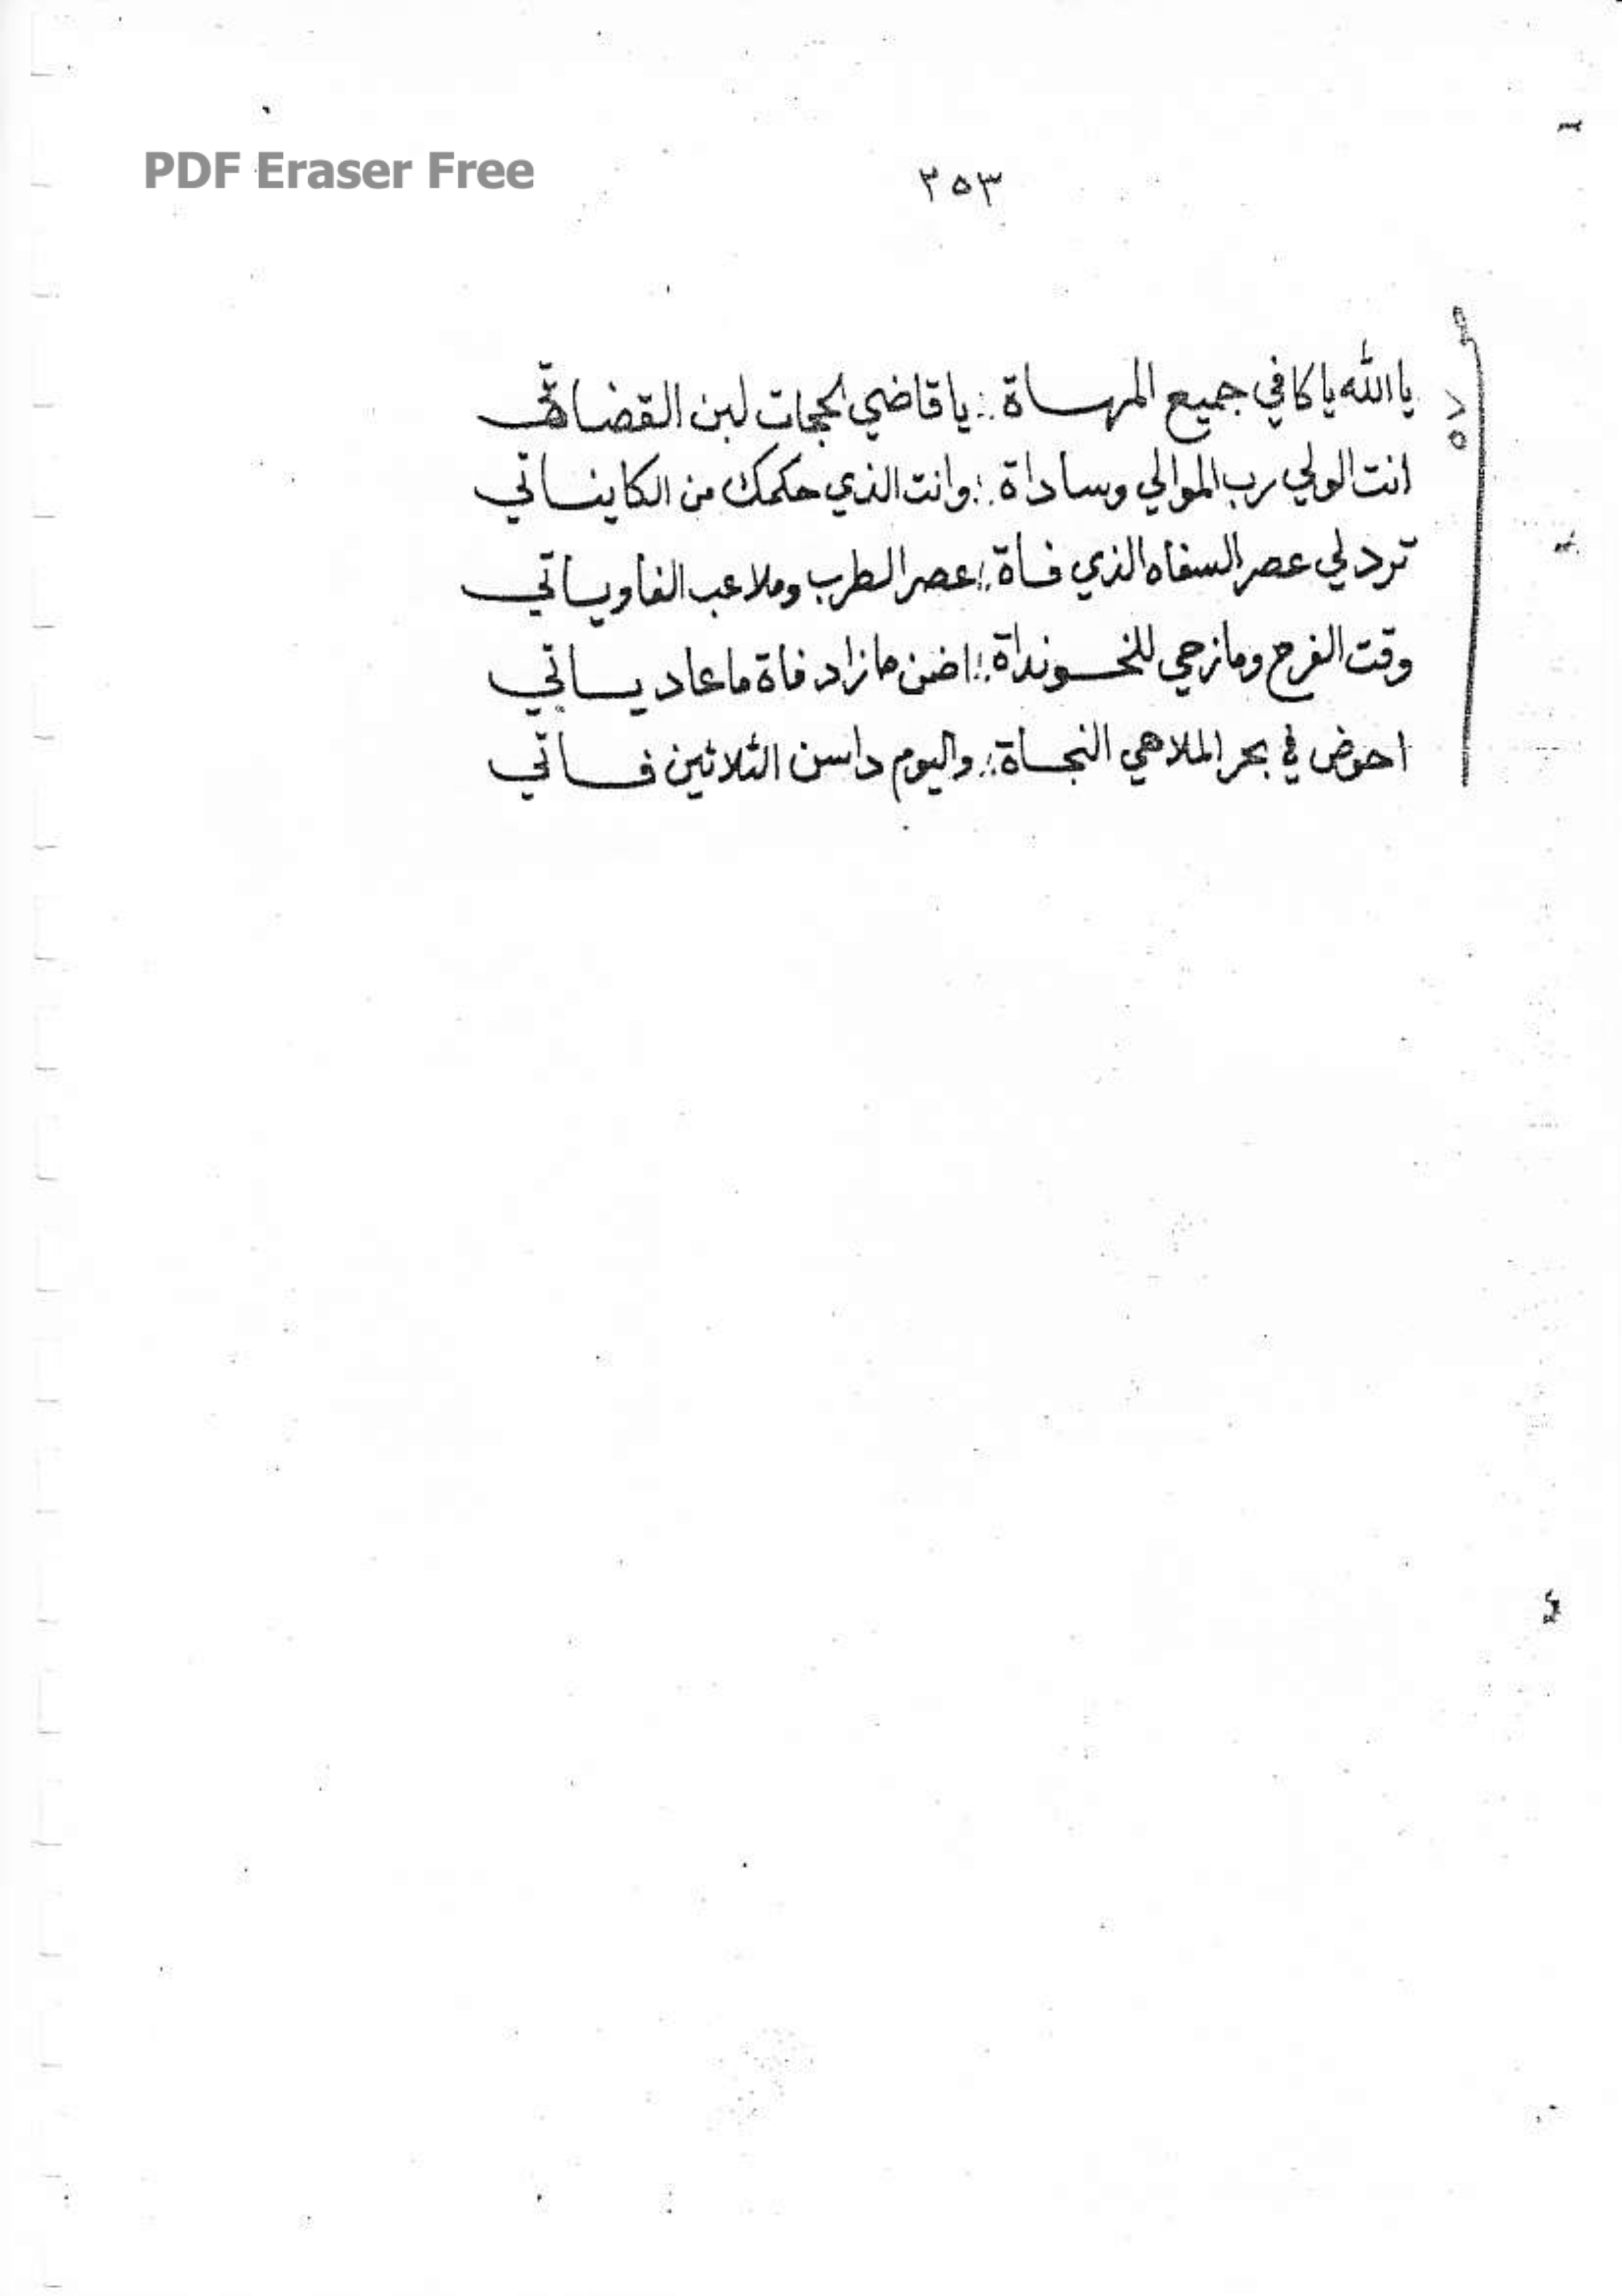 PDF Eraser Free
٢٥٣
يا الله يا كافي جميع المهساة ∴ يا قاضي لحجات لبن القضاتي
انت الولي رب الموالي وساداة ∴ وانت الذي حكمك من الكاينساتي
ترد لي عصر السفاه الذي فاة ∴ عصر الطرب وملاعب الغاويساتي
وقت الفرح ومازحي للخونداة ∴ اضن مازاد فاة ماعاد يساتي
احوض في بحر الملاهي النجاة ∴ واليوم داسن الثلاثين فاتي